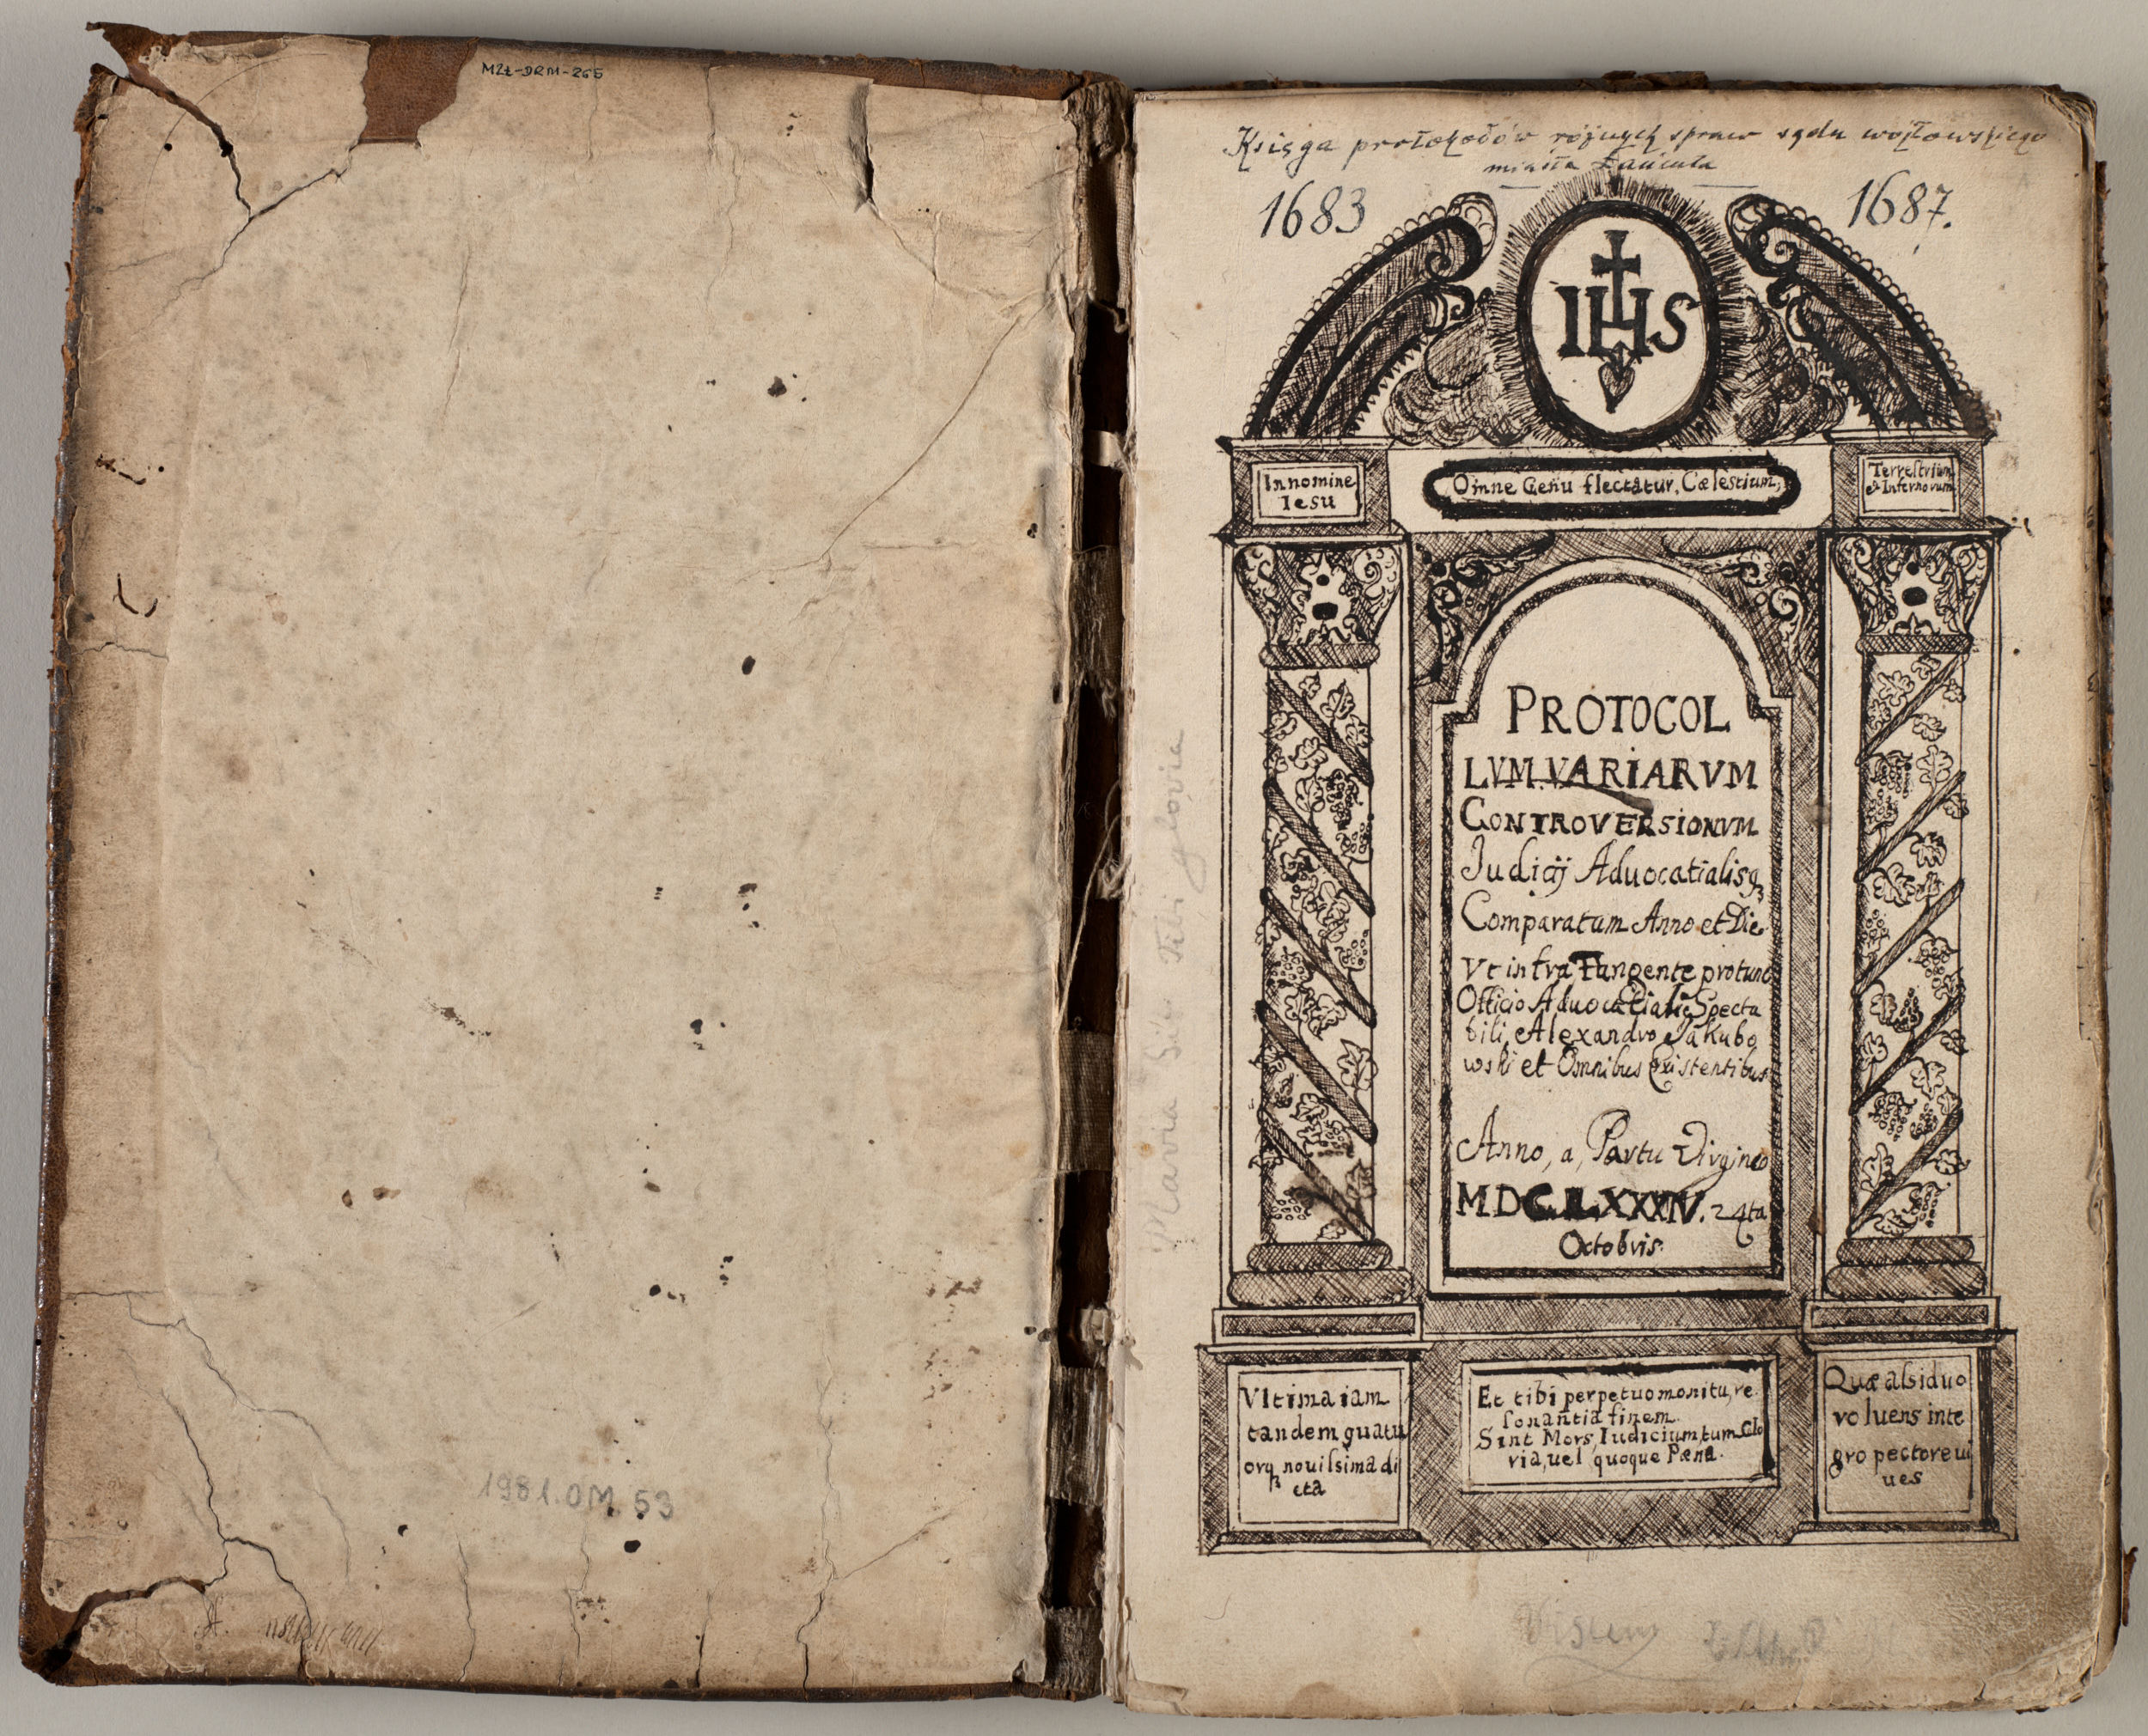 MZŁ-DRM-265
1981.OM. 53
Księga protokołów różnych spraw sądu wójtowskiego
miasta Łańcuta
1683
1687.
IHS
In nomine
Iesu
Omne Genu flectatur, Cœlestium,
Terrestrium
et Infernorum
PROTOCOL
LVM VARIARVM
CONTROVERSIONVM
Judicij Aduocatialisq3
Comparatum Anno et Die
Vt infra Tangente protunc
Officio Aduocatiali Specta
bili Alexandro Jakubo
wski et Omnibus Existentibus
Anno, a, Partu Virgineo
MDCLXXXIV. 24ta
Octobris.
Vltima iam
tandem quatu
orq3 nouissima di
cta
Et tibi perpetuo monitu, re
sonantia finem
Sint Mors, Iudicium, tum Glo
ria, uel quoque Pæna.
Quæ assiduo
voluens inte
gro pectore ui
ues
Maria Sit Tibi gloria